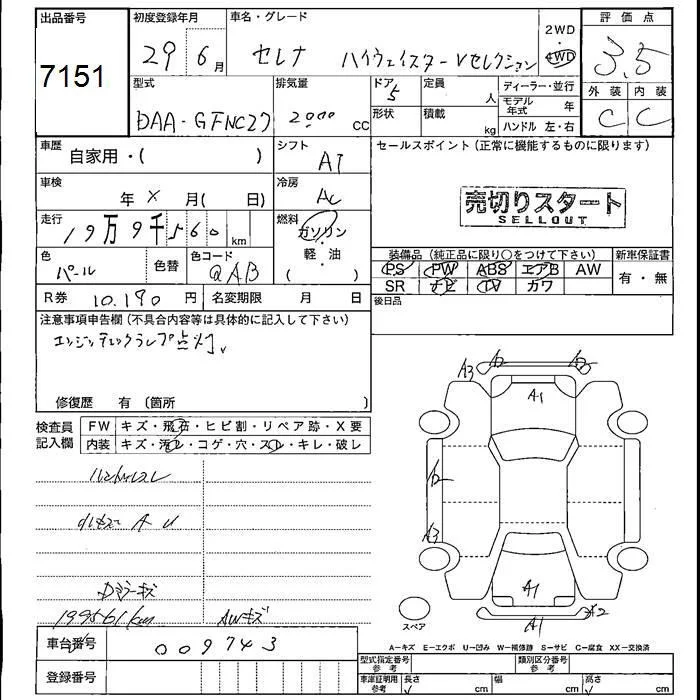 出品番号
7151
初度登録年月
29年 6月
車名・グレード
セレナ ハイウェイスターVセレクション
2WD
4WD
評価点
3.5
型式
DAA-GFNC27
排気量
2000 CC
ドア
5
形状
定員
人
積載
kg
ディーラー・並行
モデル年式 年
ハンドル 左・右
外装 内装
C C
車歴
自家用・( )
シフト
AT
セールスポイント (正常に機能するものに限ります)
車検
年 X 月( 日)
冷房
AC
売切りスタート
SELLOUT
走行
19万9千560 km
燃料
ガソリン・軽・油
( )
色
パール
色替
色コード
QAB
装備品 (純正品に限り○をつけて下さい)
新車保証書
PS PW ABS エアB AW
有・無
SR ナビ TV カワ
R券 10.190 円
名変期限 月 日
後日品
注意事項申告欄 (不具合内容等は具体的に記入して下さい)
エンジンチェックランプ点灯
修復歴 有 (箇所 )
検査員記入欄
FW キズ・飛石・ヒビ割・リペア跡・X要
内装 キズ・汚レ・コゲ・穴・スレ・キレ・破レ
A3 A2 A2
A1
A2
A3
A1
A1 A2
スペア
A U
Dミラーキズ
199561km AWキズ
車台番号
009743
登録番号
A−キズ E−エクボ U−凹み W−補修跡 S−サビ C−腐食 XX−交換済
型式指定番号 参考
類別区分番号 参考
車庫証明用 参考
長さ cm
幅 cm
高さ cm